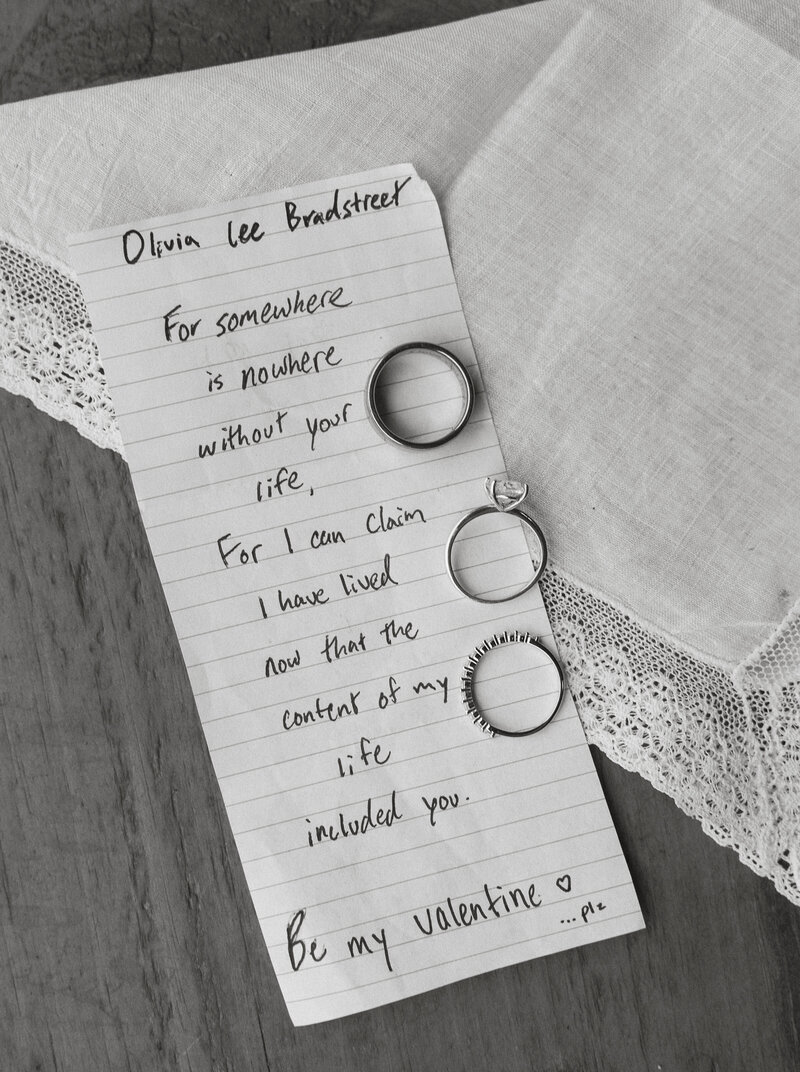 Olivia Lee Bradstreet
For somewhere
is nowhere
without your
life,
For I can claim
I have lived
now that the
content of my
life
included you.
Be my valentine ♡
...plz